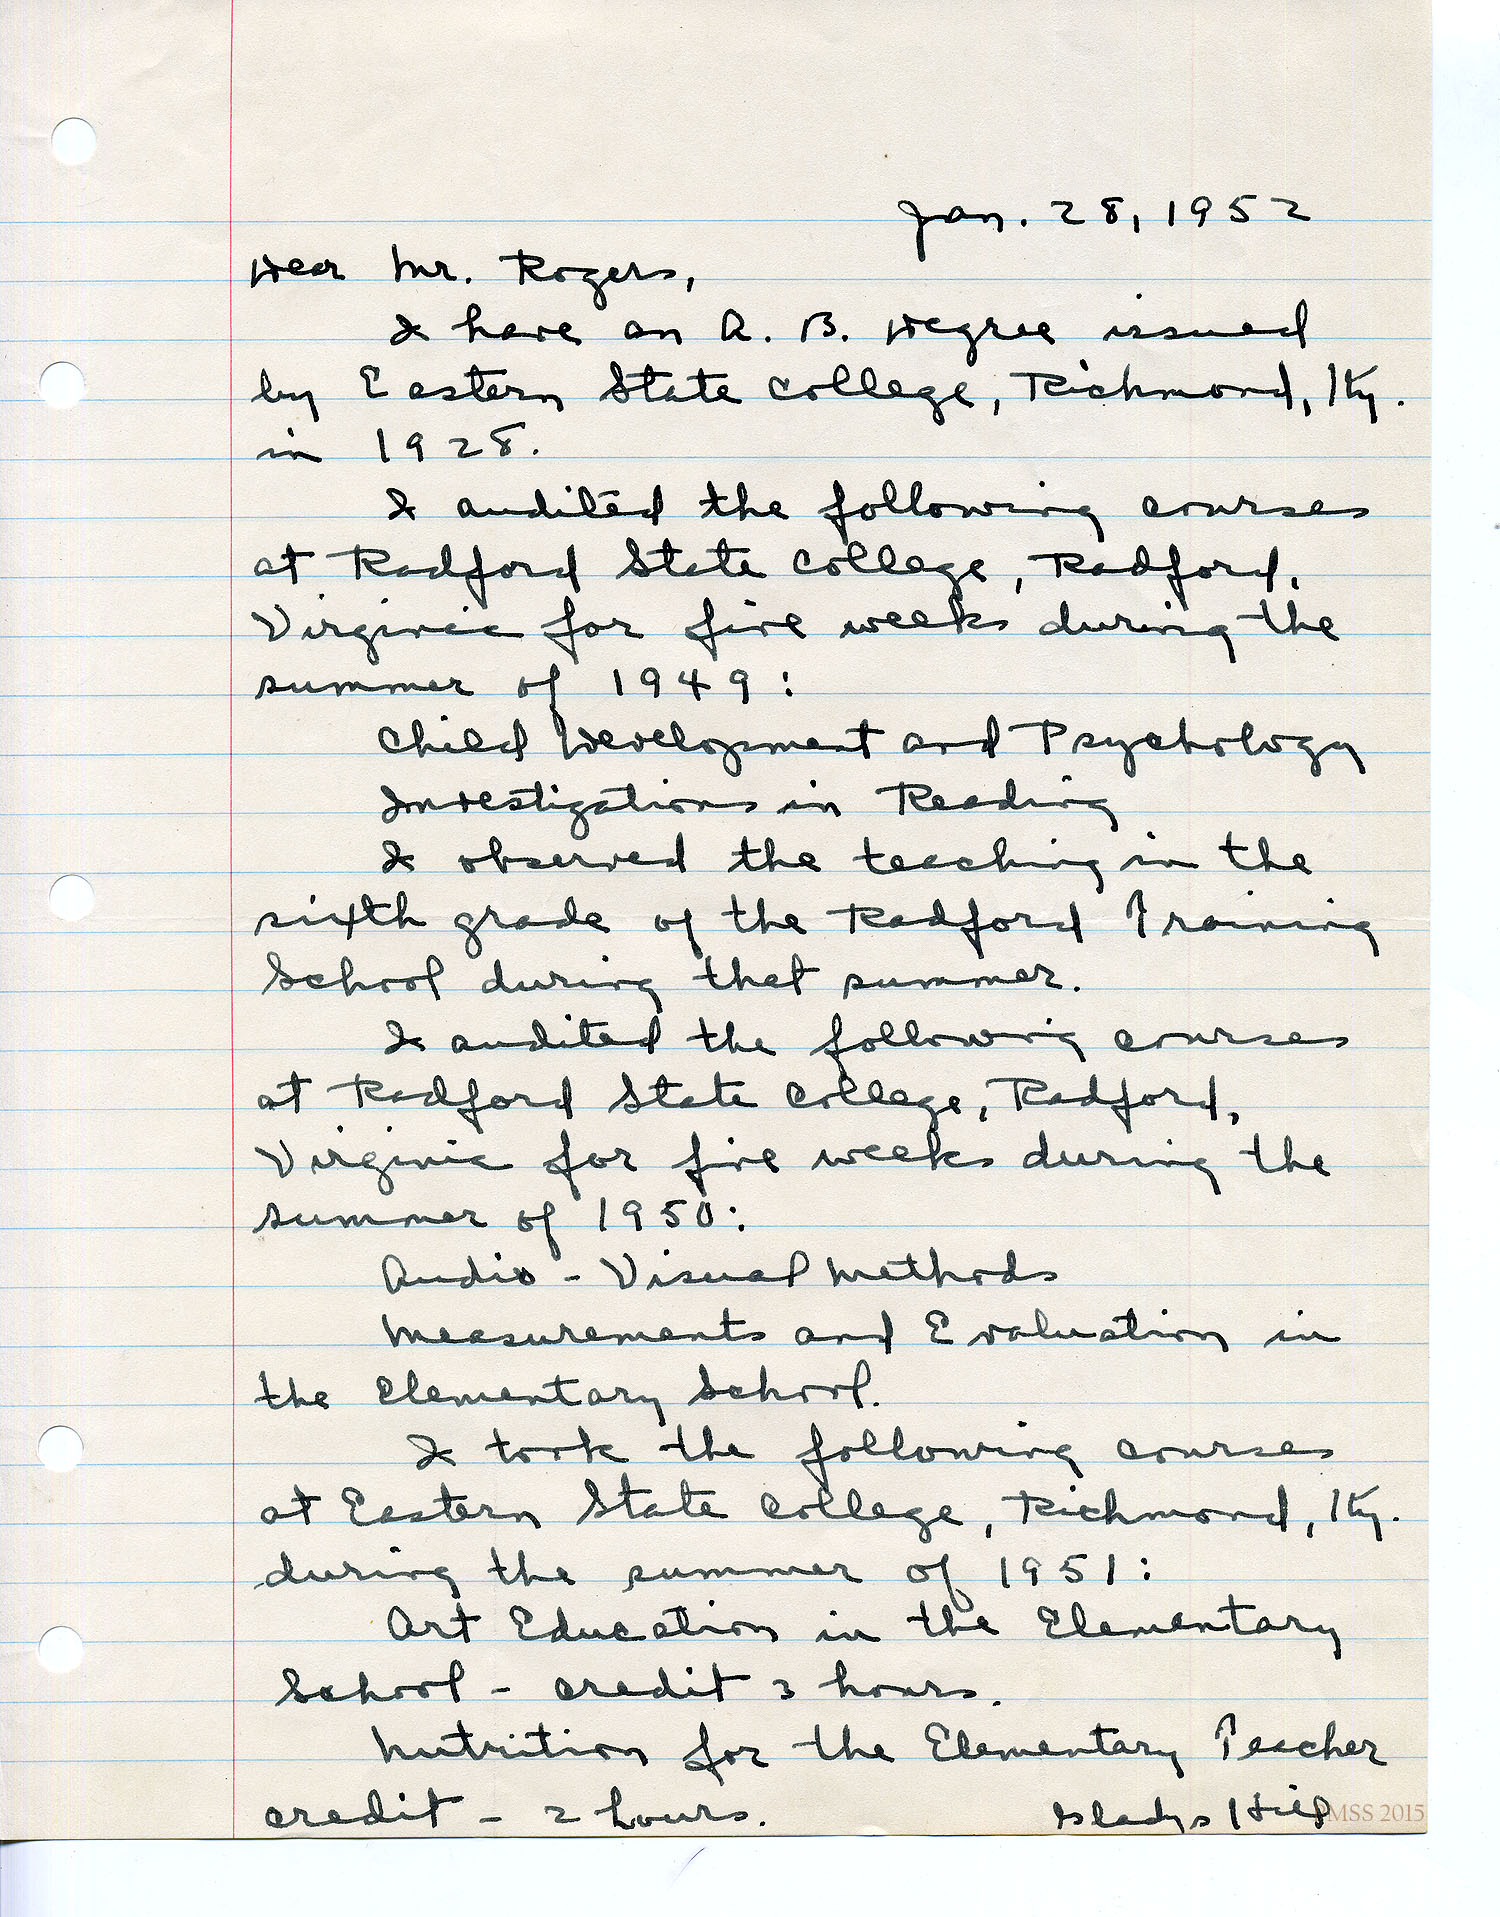 Jan. 28, 1952
Dear Mr. Rogers,
I have an A. B. Degree issued
by Eastern State College, Richmond, Ky.
in 1928.
I audited the following courses
at Radford State College, Radford,
Virginia for five weeks during the
summer of 1949:
Child Development and Psychology
Investigations in Reading
I observed the teaching in the
sixth grade of the Radford Training
School during that summer.
I audited the following courses
at Radford State College, Radford,
Virginia for five weeks during the
summer of 1950:
Audio - Visual Methods
Measurements and Evaluation in
the Elementary School.
I took the following courses
at Eastern State College, Richmond, Ky.
during the summer of 1951:
Art Education in the Elementary
School - credit 3 hours.
Nutrition for the Elementary Teacher
credit - 2 hours. Gladys Hill
PMSS 2015